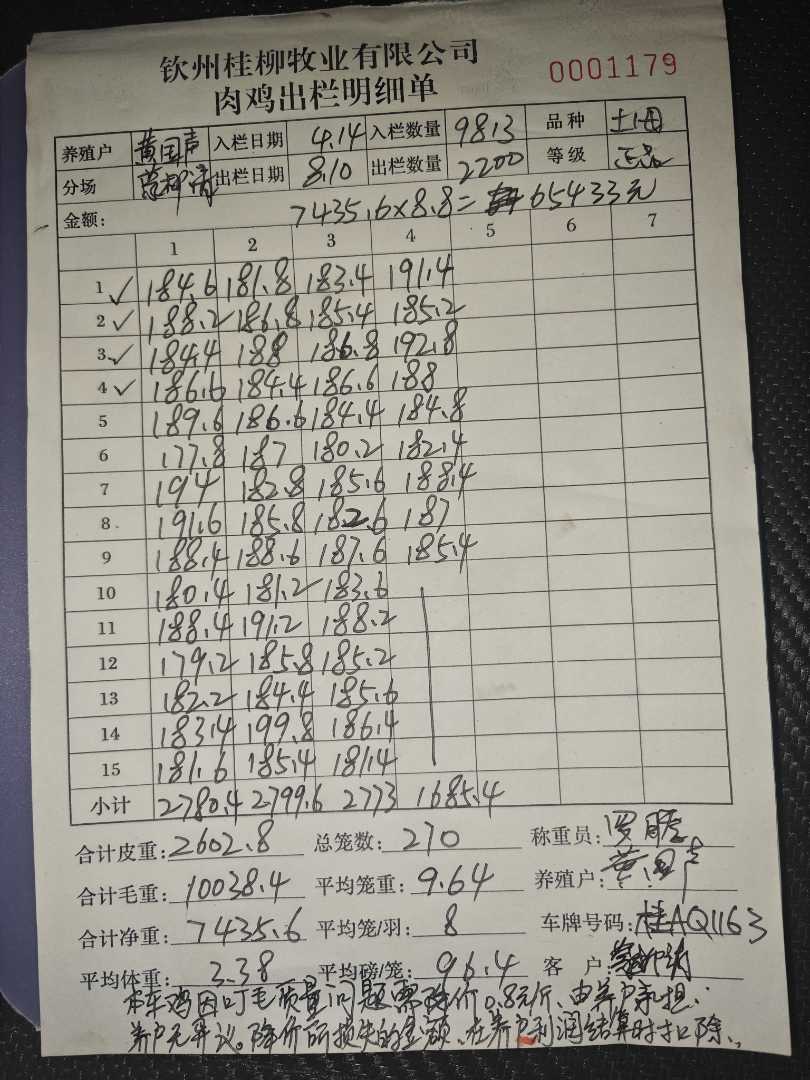 钦州桂柳牧业有限公司
0001179
肉鸡出栏明细单
养殖户 黄国声 入栏日期 4.14 入栏数量 9813 品种
分场 出栏日期 8.10 出栏数量 2200 等级 正品
金额: 7435.6×8.8= 65433元
1 2 3 4 5 6 7
1 ✓ 184.6 181.8 183.4 191.4
2 ✓ 188.2 186.8 185.4 185.2
3 ✓ 184.4 188 186.8 192.8
4 ✓ 186.6 184.4 186.6 188
5 189.6 186.6 184.4 184.8
6 177.8 187 180.2 182.4
7 194 182.8 185.6 188.4
8 191.6 185.8 182.6 187
9 188.4 188.6 187.6 185.4
10 180.4 181.2 183.6
11 188.4 191.2 188.2
12 179.2 185.8 185.2
13 182.2 184.4 185.6
14 183.4 199.8 186.4
15 181.6 185.4 181.4
小计 2780.4 2799.6 2773 1685.4
合计皮重: 2602.8 总笼数: 270 称重员: 罗
合计毛重: 10038.4 平均笼重: 9.64 养殖户: 黄国声
合计净重: 7435.6 平均笼/羽: 8 车牌号码: 桂AQ1163
平均体重: 3.38 平均磅/笼: 96.4 客户:
本车鸡因叮毛质量问题需降价0.8元/斤、由养户承担.
养户无异议。降价所损失的金额、在养户利润结算时扣除.